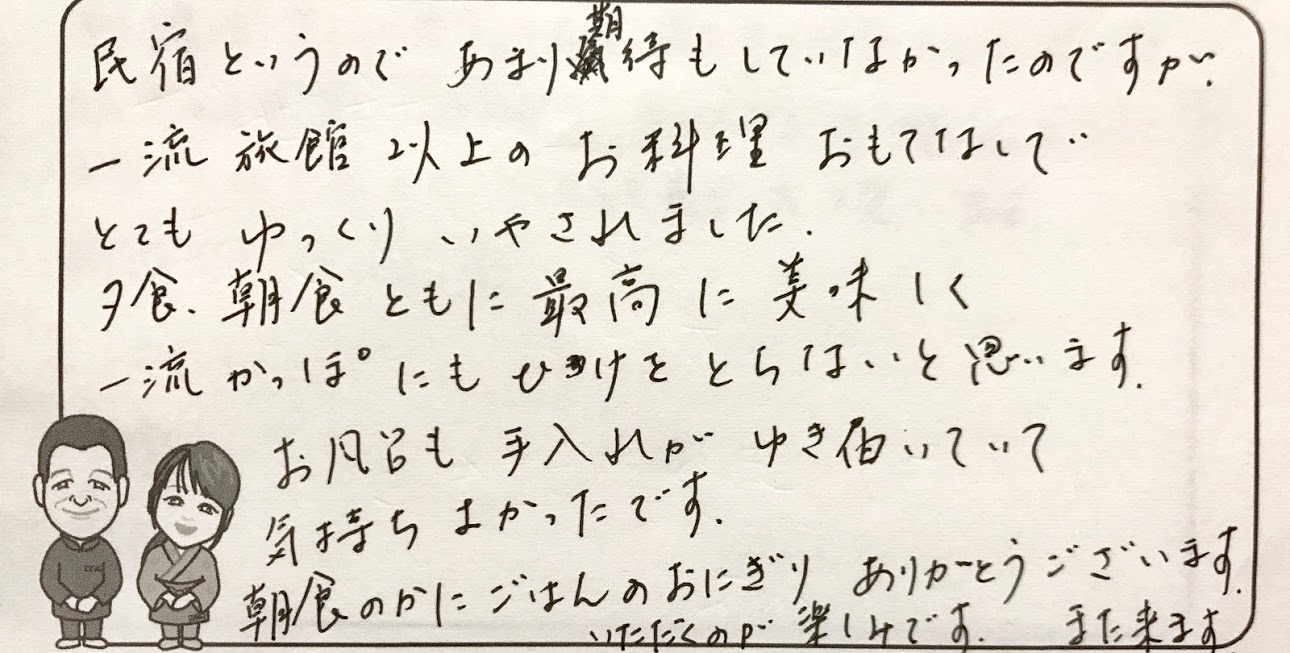 民宿というので あまり期待もしていなかったのですが、
一流旅館以上のお料理 おもてなしで
とても ゆっくり いやされました.
夕食、朝食ともに最高に美味しく
一流かっぽうにもひけをとらないと思います.
お風呂も 手入れが ゆき届いていて
気持ちよかったです.
朝食のかにごはんのおにぎり ありがとうございます.
いただくのが楽しみです. また来ます